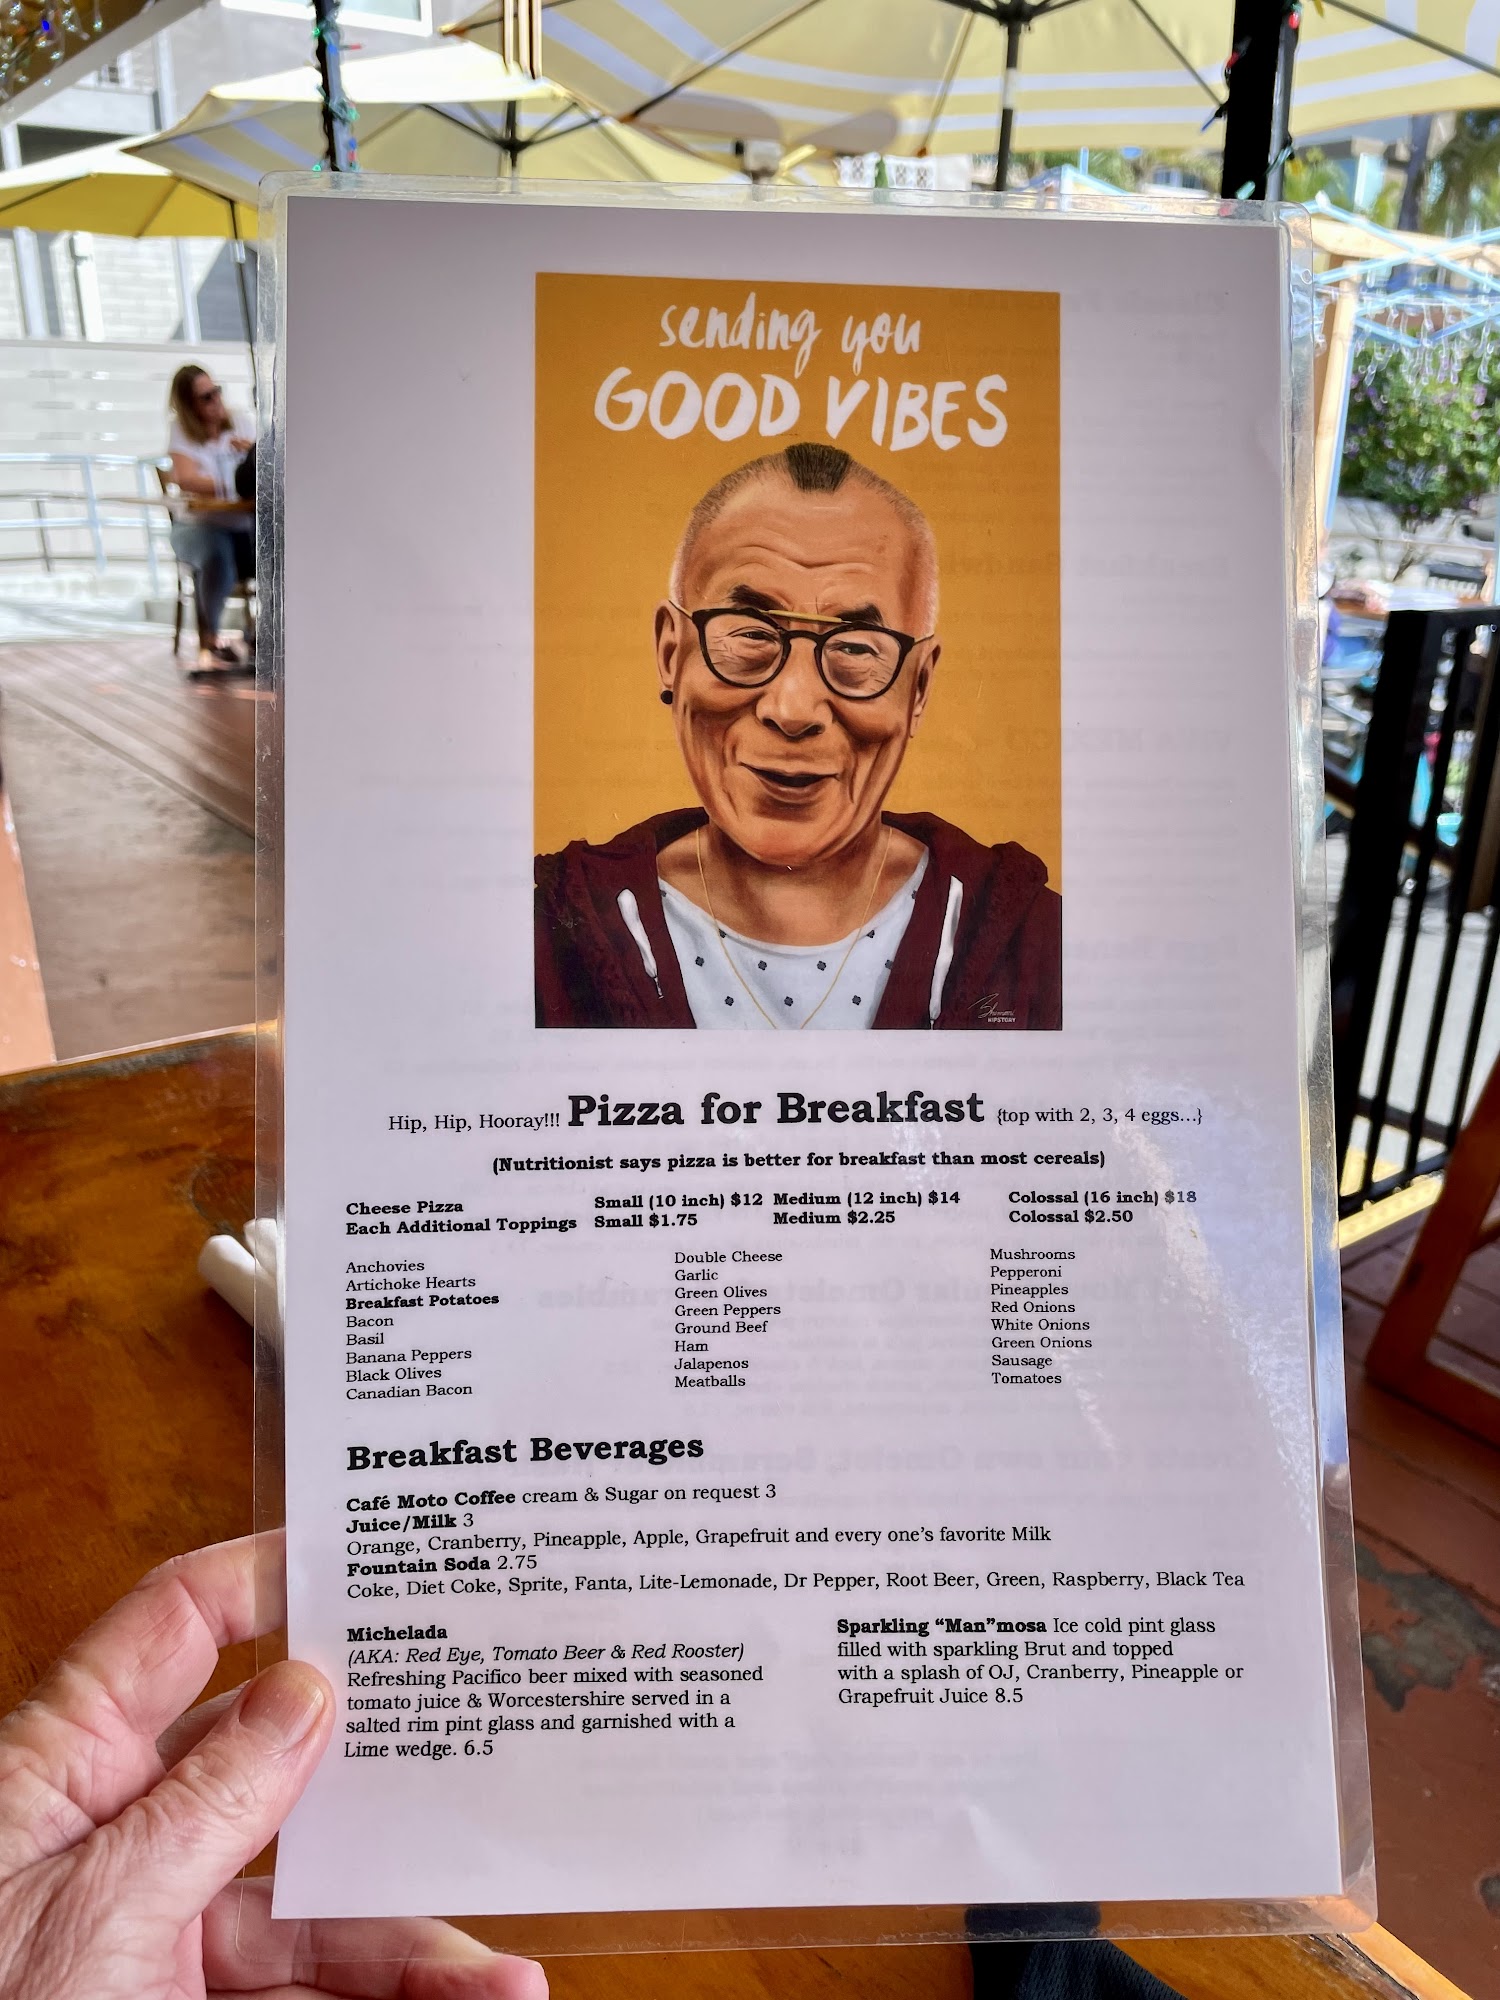 sending you
GOOD VIBES
HIPSTORY
Hip, Hip, Hooray!!! Pizza for Breakfast {top with 2, 3, 4 eggs...}
(Nutritionist says pizza is better for breakfast than most cereals)
Cheese Pizza Small (10 inch) $12 Medium (12 inch) $14 Colossal (16 inch) $18
Each Additional Toppings Small $1.75 Medium $2.25 Colossal $2.50
Anchovies
Artichoke Hearts
Breakfast Potatoes
Bacon
Basil
Banana Peppers
Black Olives
Canadian Bacon
Double Cheese
Garlic
Green Olives
Green Peppers
Ground Beef
Ham
Jalapenos
Meatballs
Mushrooms
Pepperoni
Pineapples
Red Onions
White Onions
Green Onions
Sausage
Tomatoes
Breakfast Beverages
Café Moto Coffee cream & Sugar on request 3
Juice/Milk 3
Orange, Cranberry, Pineapple, Apple, Grapefruit and every one's favorite Milk
Fountain Soda 2.75
Coke, Diet Coke, Sprite, Fanta, Lite-Lemonade, Dr Pepper, Root Beer, Green, Raspberry, Black Tea
Michelada
(AKA: Red Eye, Tomato Beer & Red Rooster)
Refreshing Pacifico beer mixed with seasoned
tomato juice & Worcestershire served in a
salted rim pint glass and garnished with a
Lime wedge. 6.5
Sparkling “Man”mosa Ice cold pint glass
filled with sparkling Brut and topped
with a splash of OJ, Cranberry, Pineapple or
Grapefruit Juice 8.5